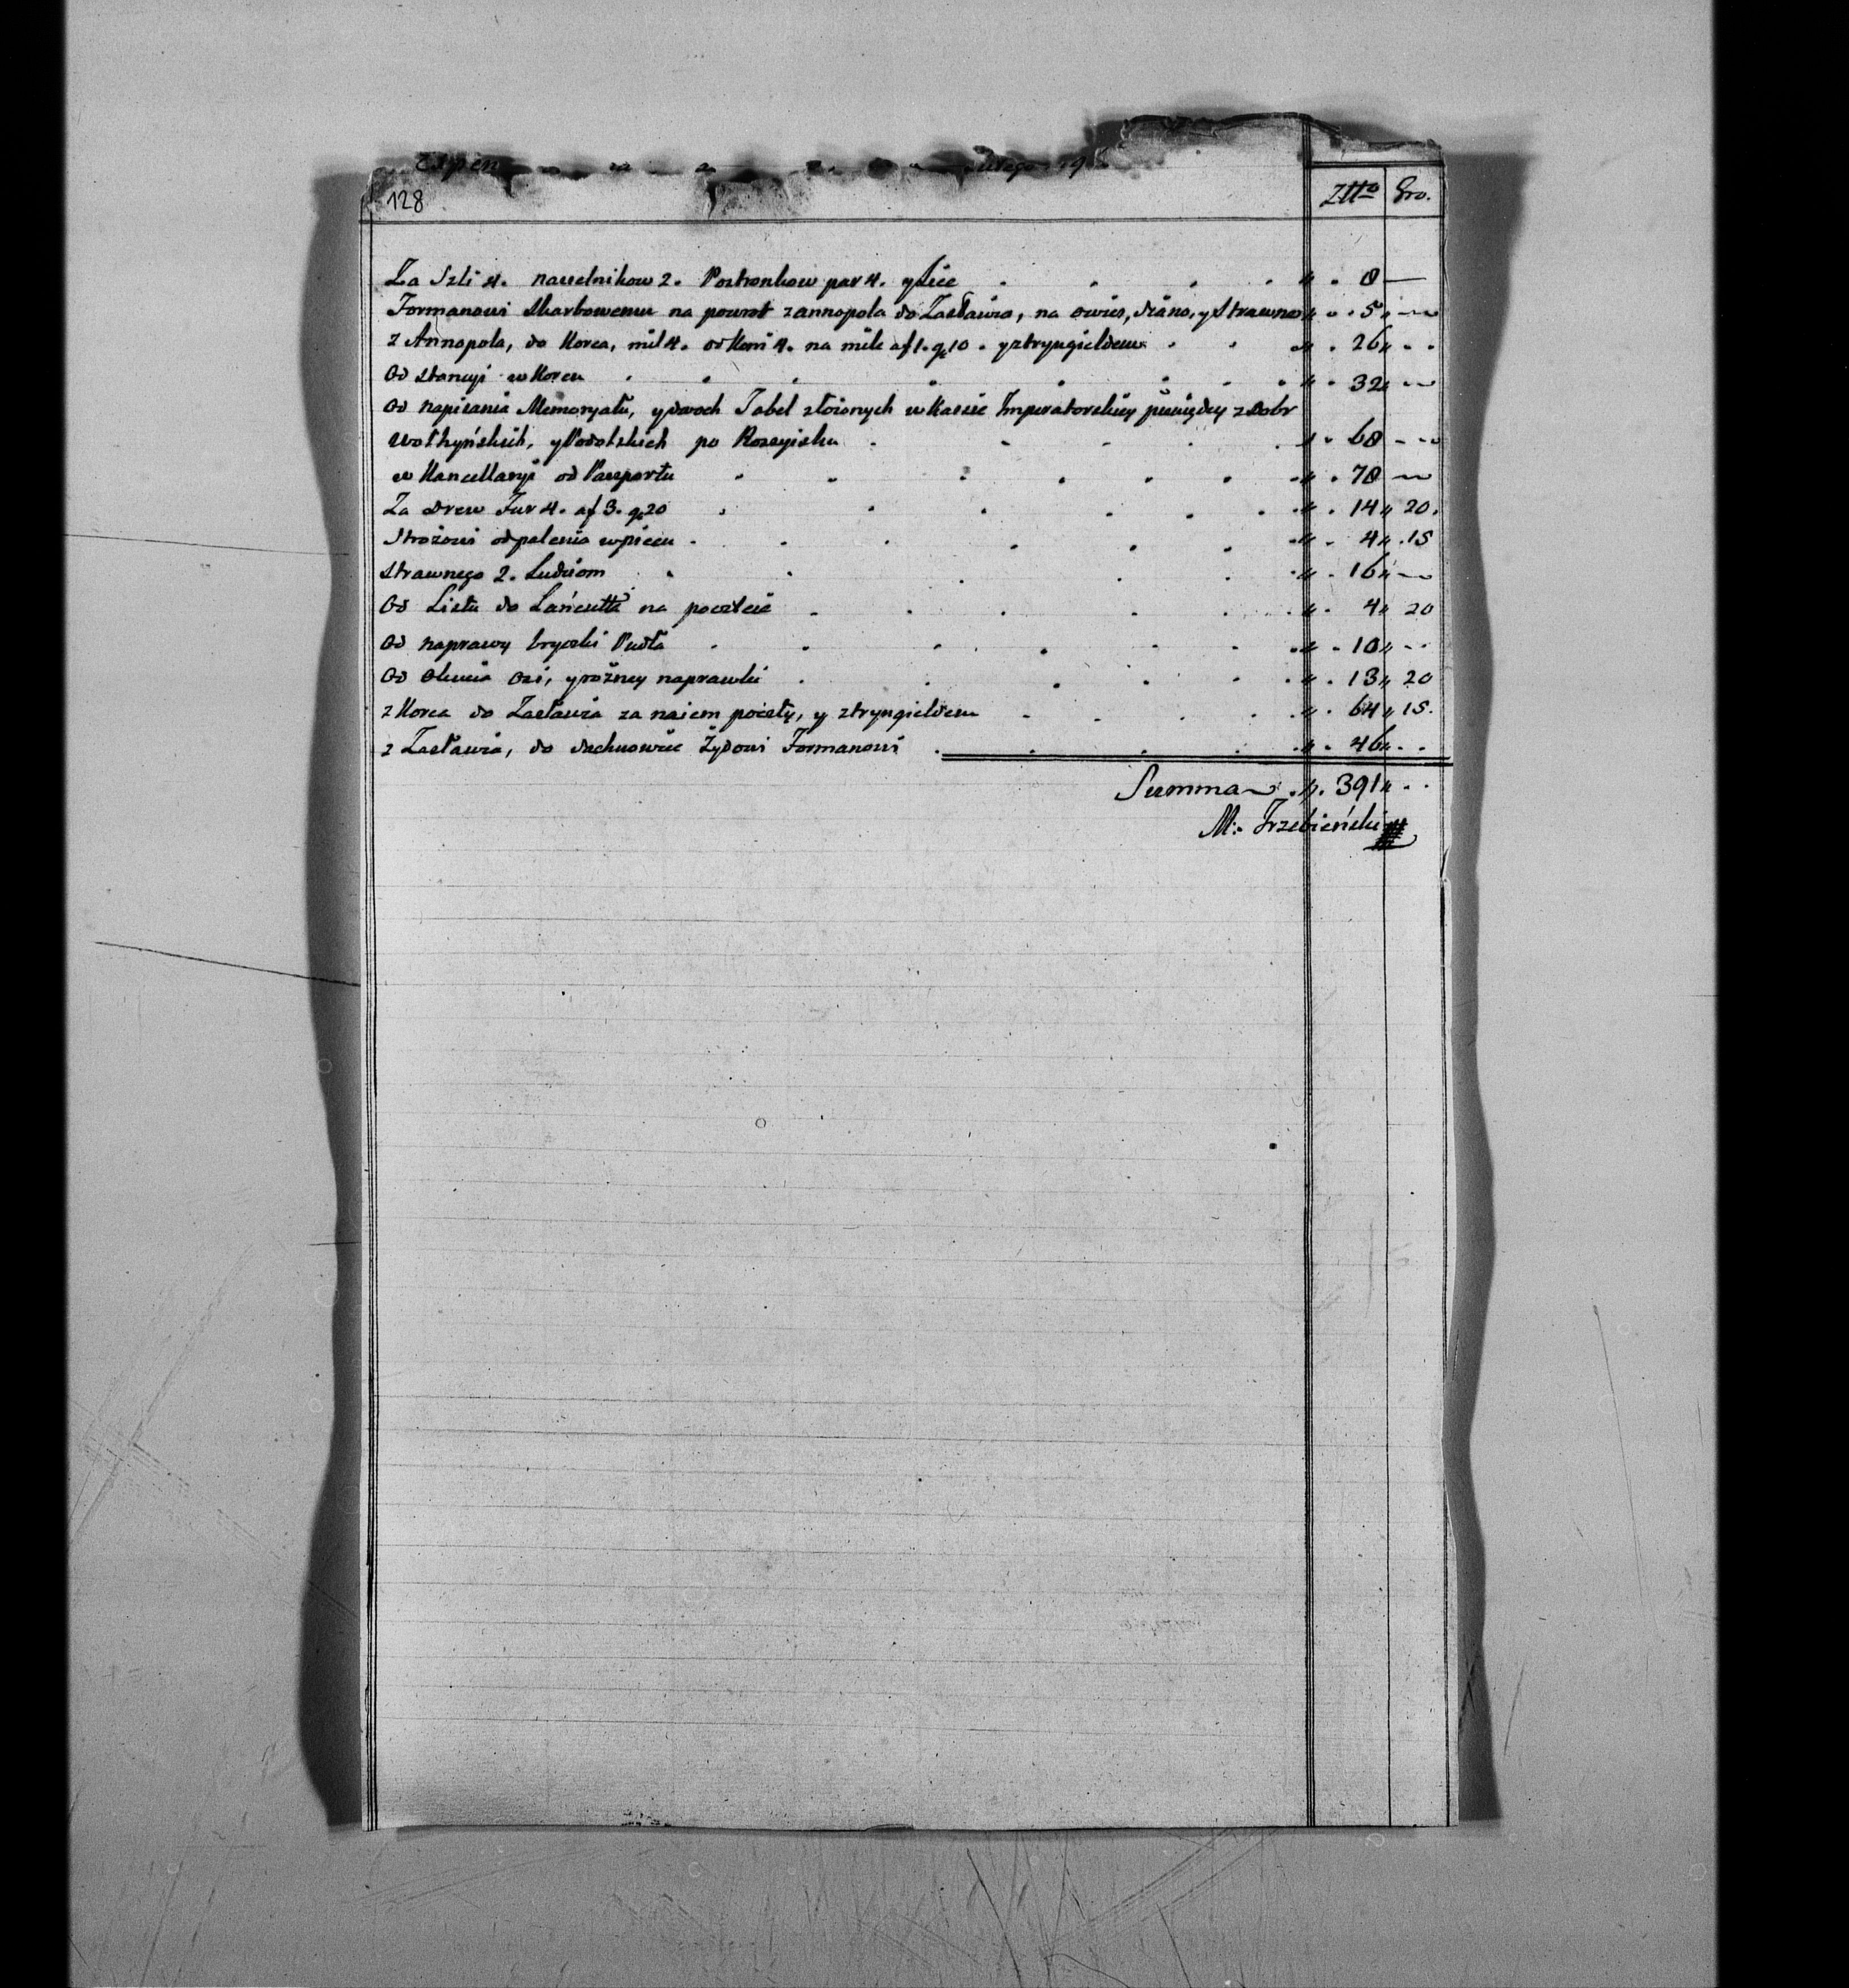 128
Złto Gro.
Za Szli 4. naszelnikow 2. Postronkow par 4. y Lice „ 8 —
Formanowi Skarbowemu na powrot z annopola do Zasławia, na owies, siano, y Strawne „ 5 „ —
z Annopola, do Korca, mil 4. od Koni 4. na mile af 1. g. 10. y ztryngieldem „ 26 „ - -
Od Stancyi w Korcu „ 32 „ —
Od napisania Memoryału, y dwoch Tabel złożonych w Kassie Imperatorskiey pieniędzy z Dobr
Wołhyńskich, y Podolskich po Rossyisku „ 68 — —
w Kancellaryi od Paszportu „ 78 —
Za drew Fur 4. af 3. g. 20 „ 14 „ 20.
Strożowi od palenia w piecu „ 4 „ 15
Strawnego 2. Ludziom „ 16 „ —
Od Listu do Łańcutta na poczcie „ 4 „ 20
Od naprawy bryczki Pudła „ 10 „ - -
Od Okucia Osi, y rożney naprawki „ 13 „ 20
z Korca do Zasławia za naiem poczty, y ztryngieldem „ 64 „ 15.
z Zasławia, do Żydowi Formanowi „ 46 „ - -
Summa „ 391 „ - -
M: Trzebieński